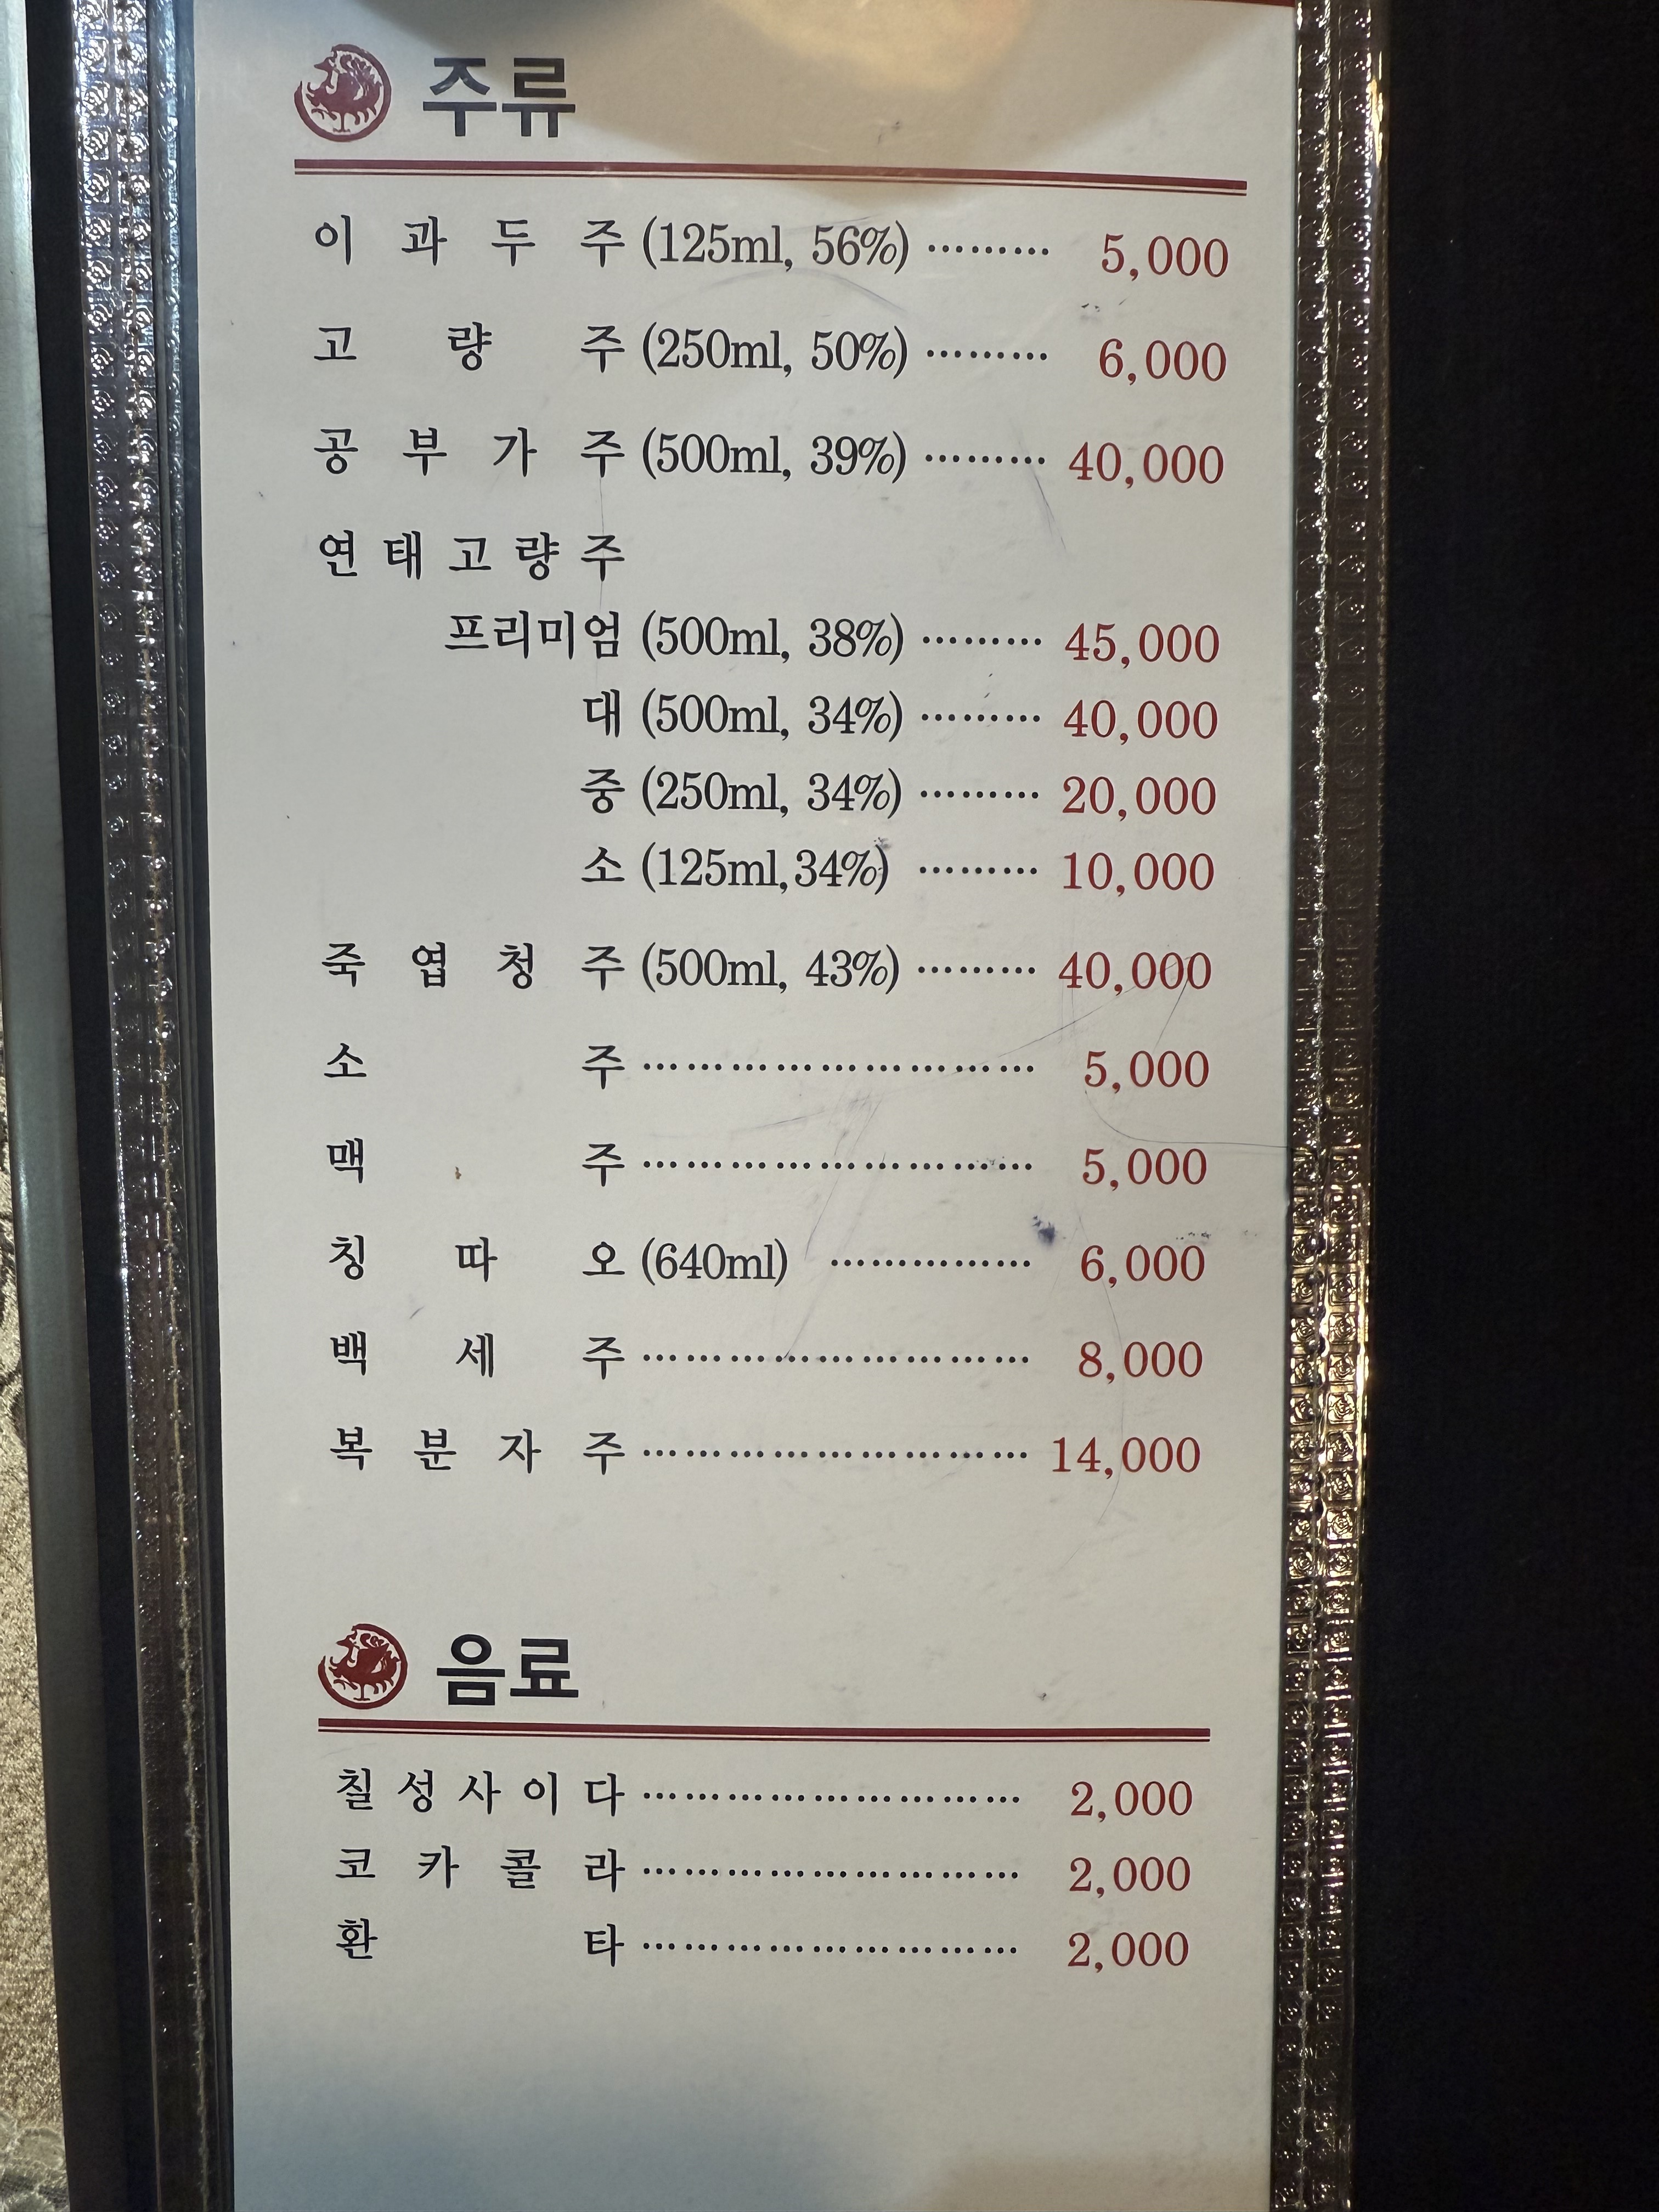 주류
이과두주 (125ml, 56%) ········· 5,000
고량주 (250ml, 50%) ········· 6,000
공부가주 (500ml, 39%) ········· 40,000
연태고량주
프리미엄 (500ml, 38%) ········· 45,000
대 (500ml, 34%) ········· 40,000
중 (250ml, 34%) ········· 20,000
소 (125ml,34%) ········· 10,000
죽엽청주 (500ml, 43%) ········· 40,000
소주 ··························· 5,000
맥주 ··························· 5,000
칭따오 (640ml) ··············· 6,000
백세주 ··························· 8,000
복분자주 ··························· 14,000
음료
칠성사이다 ··························· 2,000
코카콜라 ··························· 2,000
환타 ··························· 2,000